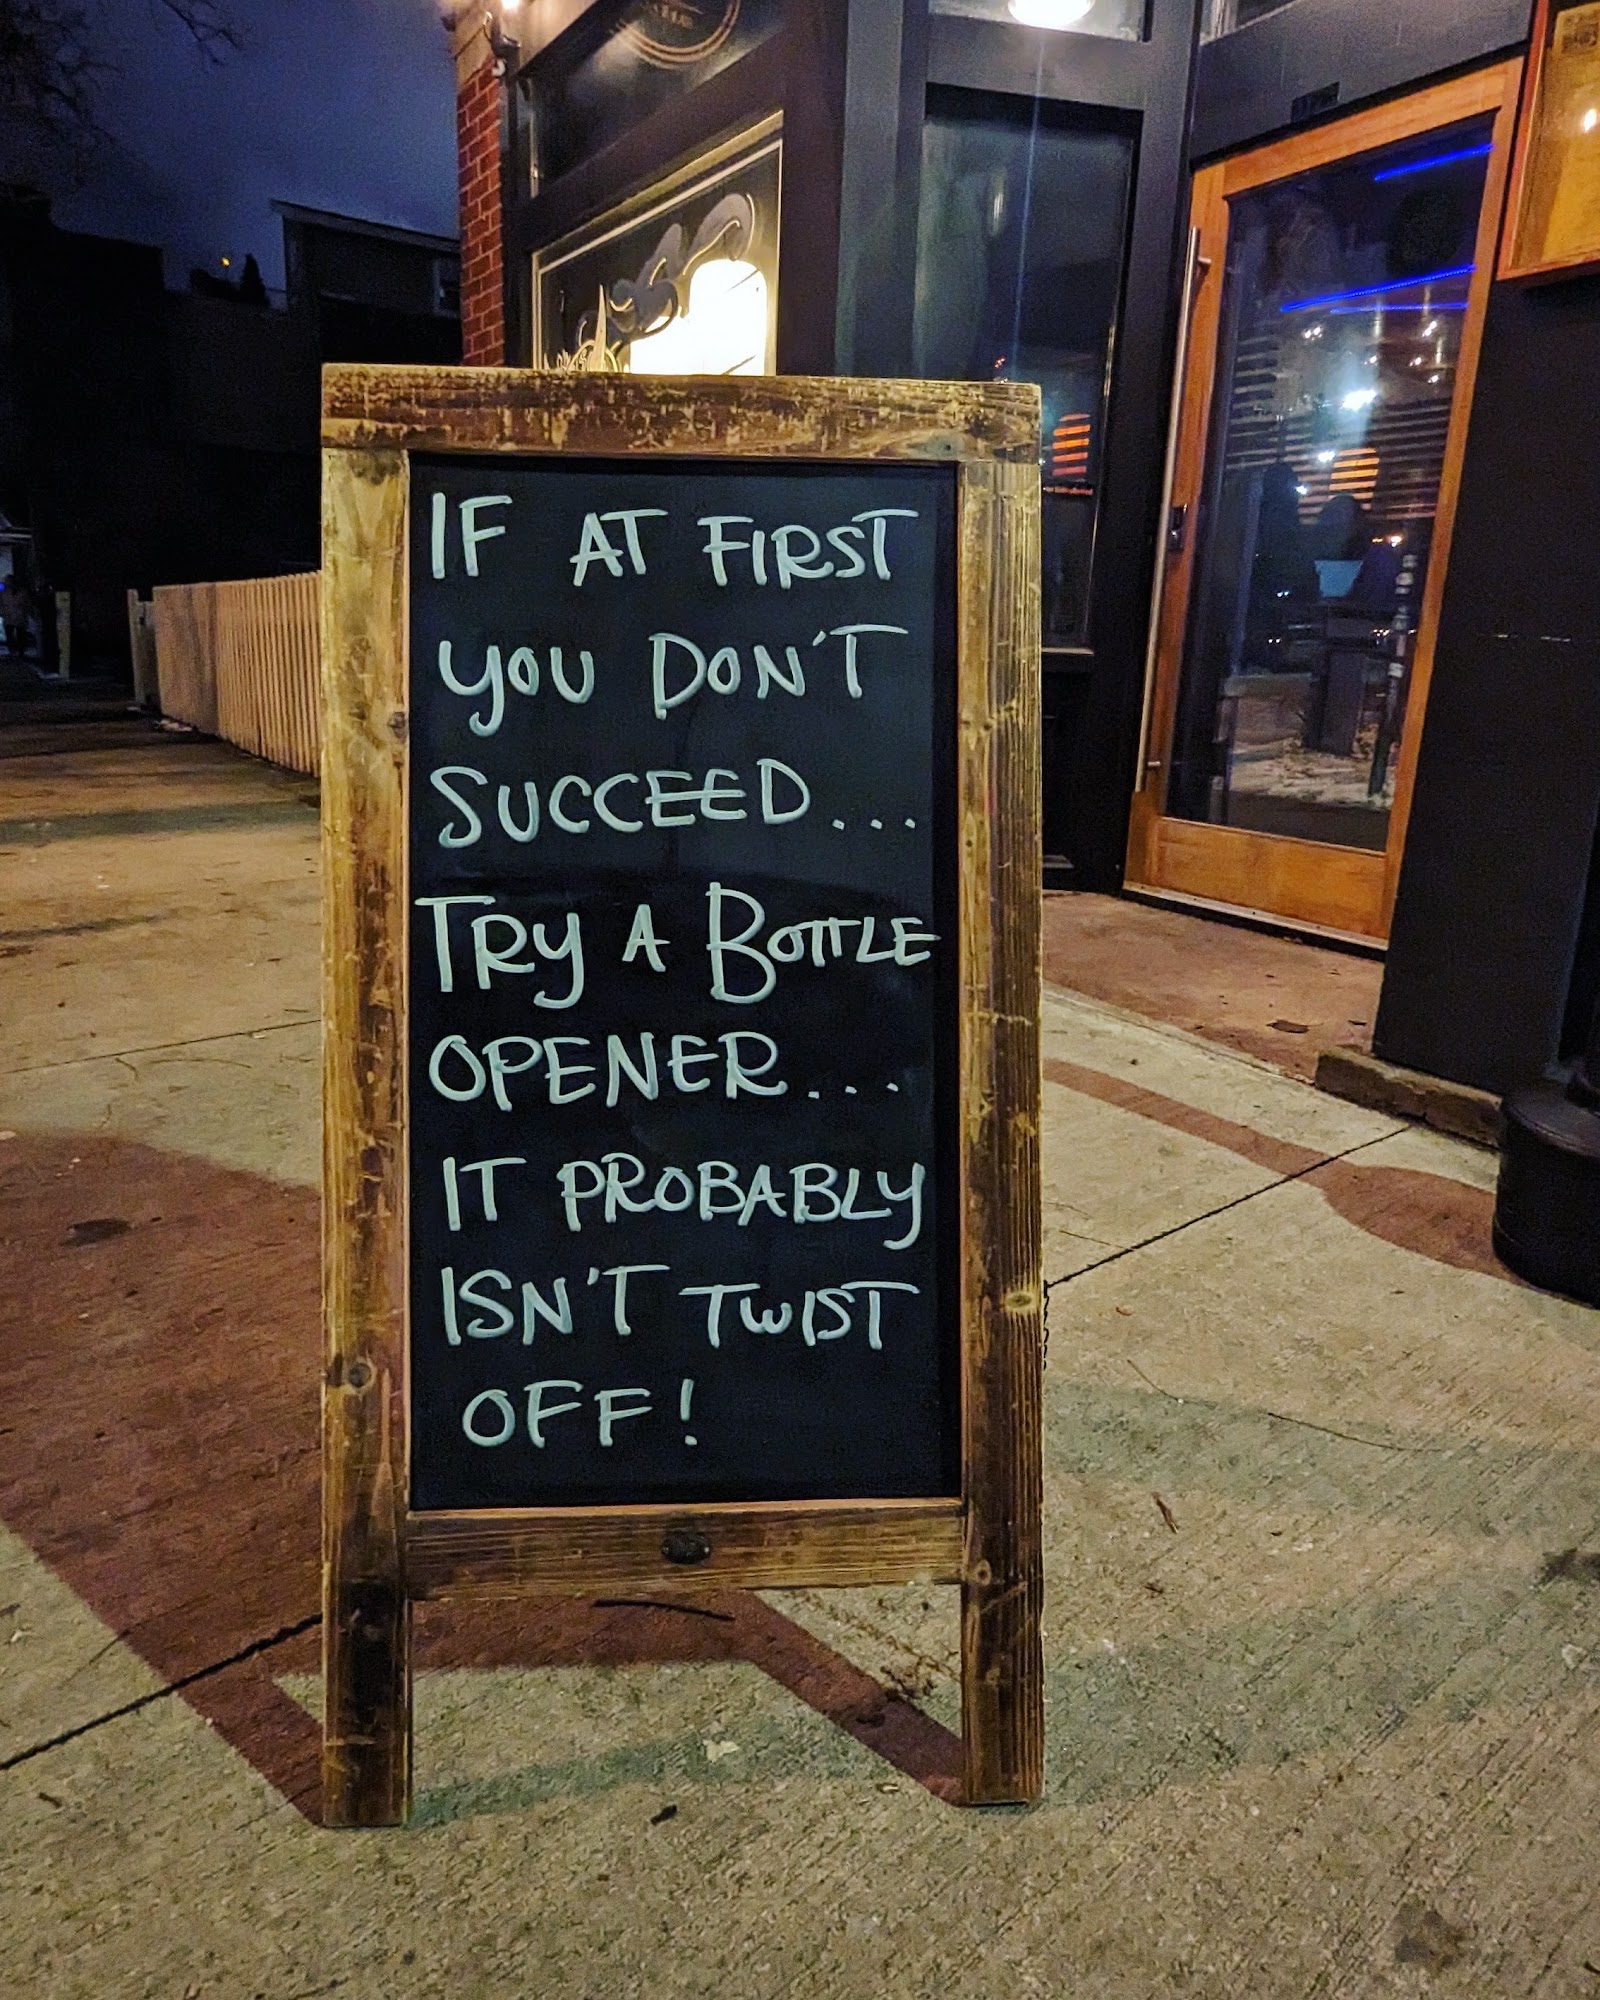 IF AT FIRST
YOU DON'T
SUCCEED...
TRY A BOTTLE
OPENER...
IT PROBABLY
ISN'T TWIST
OFF!